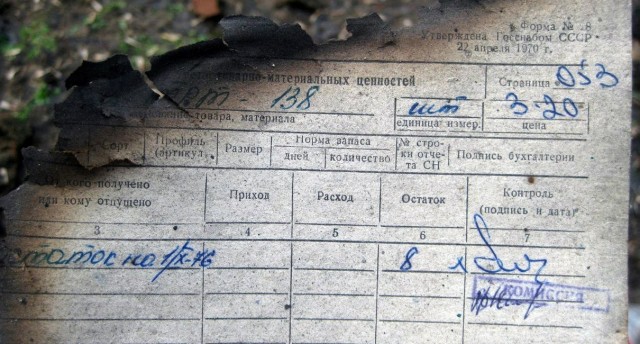 Форма № 8
Утверждена Госснабом СССР
22 апреля 1970 г.
товарно-материальных ценностей
Страница 053
- 138
шт
3-20
товара, материала
единица измер.
цена
Сорт
Профиль (артикул)
Размер
Норма запаса
дней
количество
№ стро-
ки отче-
та СН
Подпись бухгалтерии
кого получено
или кому отпущено
Приход
Расход
Остаток
Контроль
(подпись и дата)
3
4
5
6
7
остаток на 1/X-76
8
КОМИССИЯ